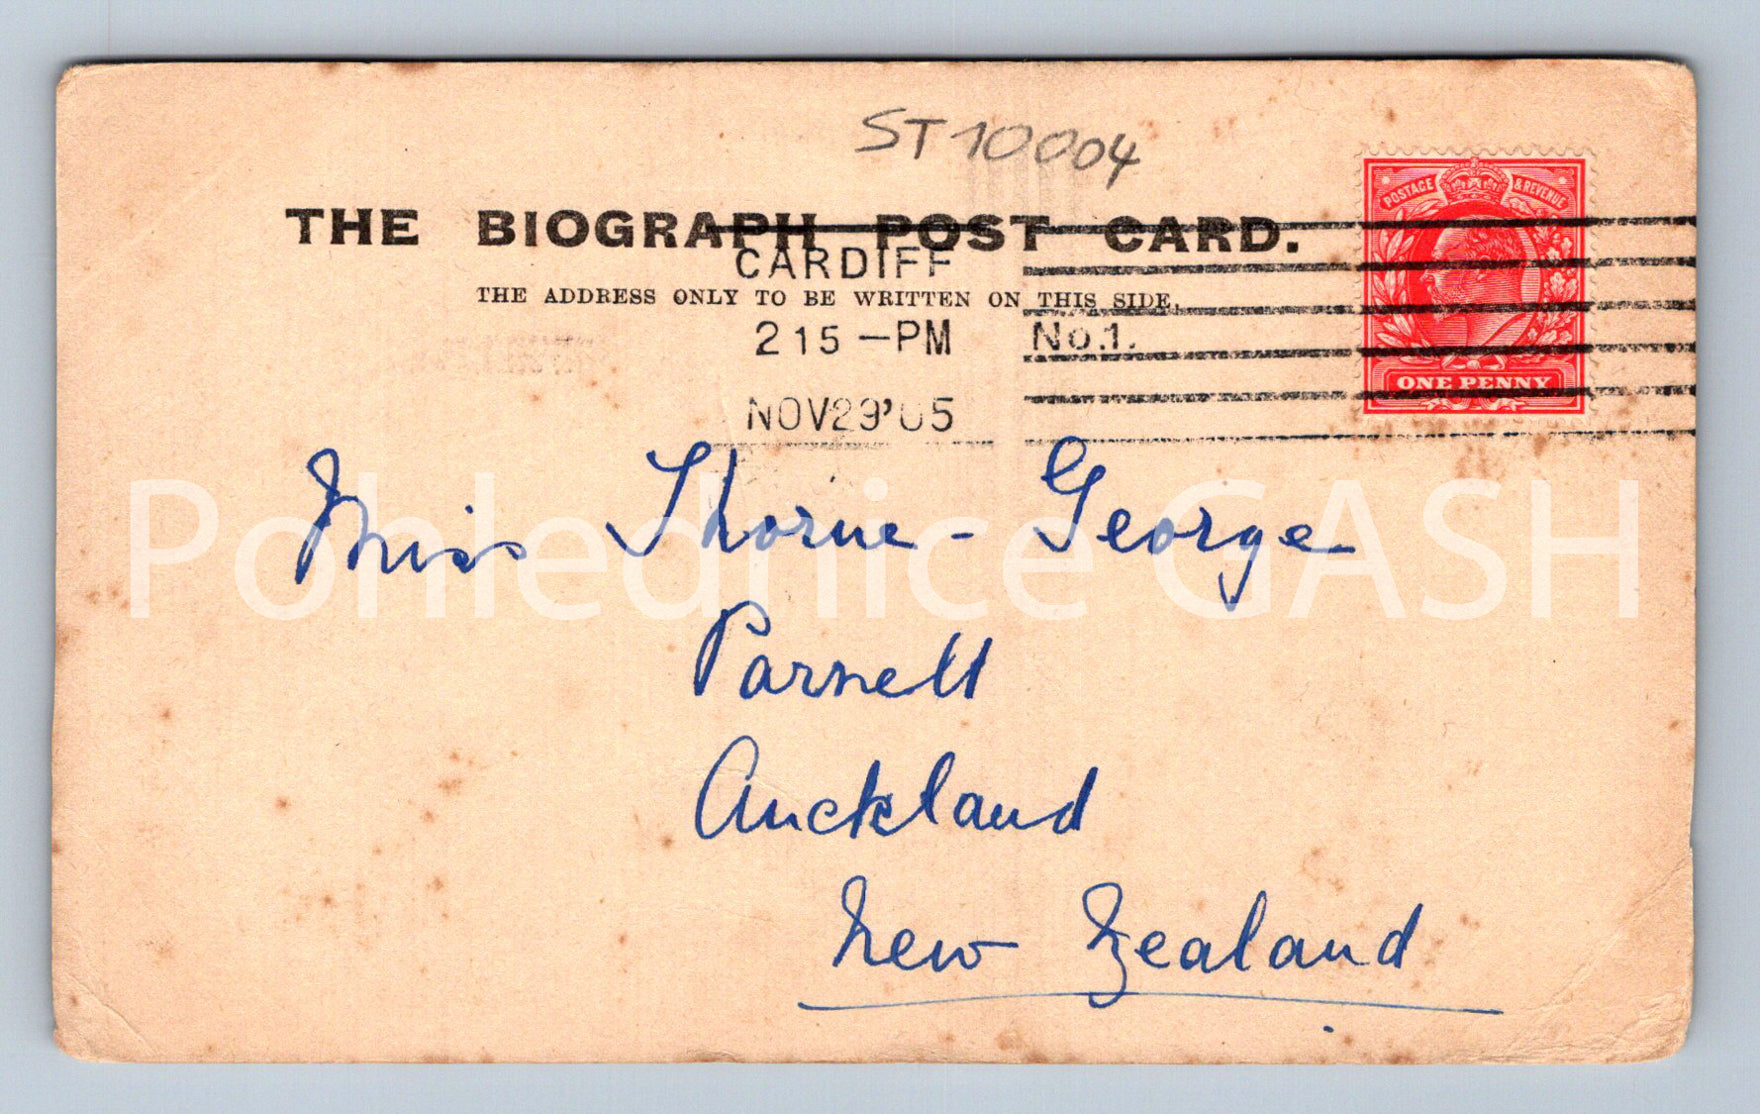 ST10004
THE BIOGRAPH POST CARD.
CARDIFF
THE ADDRESS ONLY TO BE WRITTEN ON THIS SIDE.
2 15 – PM No.1.
NOV 29 '05
POSTAGE & REVENUE
ONE PENNY
Miss Thorne-George
Pohlednice GASH
Parnell
Auckland
New Zealand